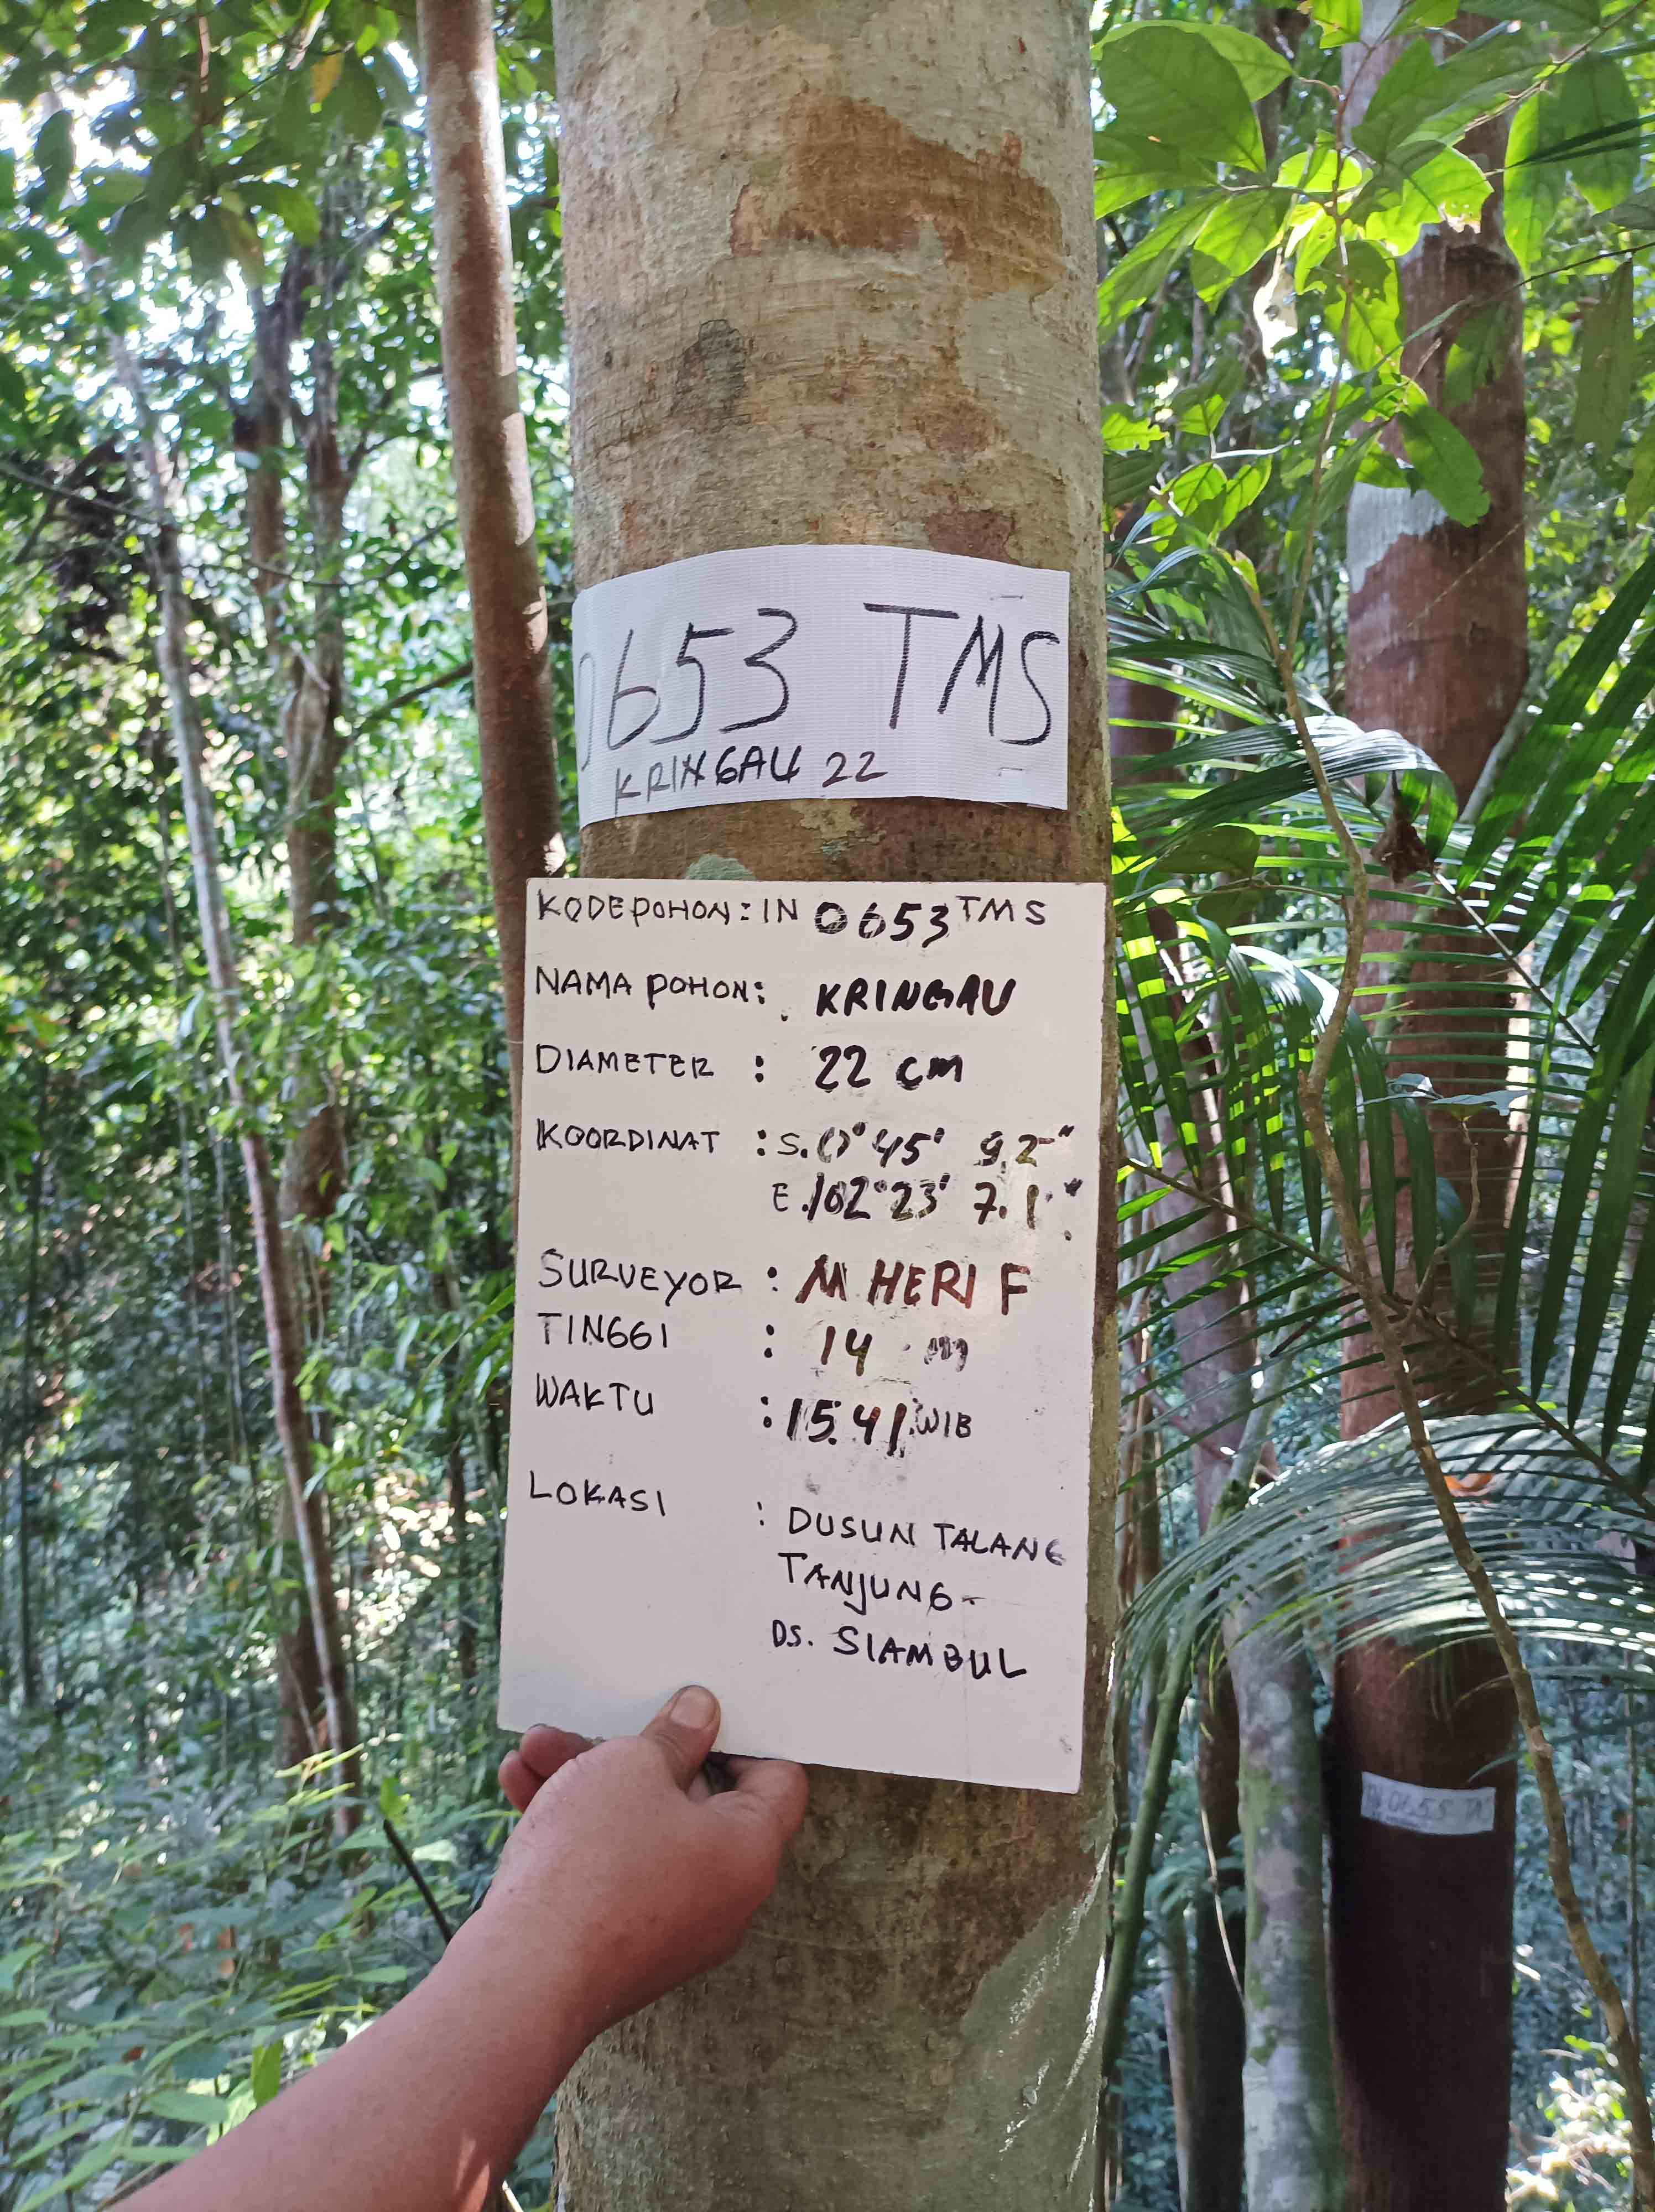 0653 TMS
KRINGAU 22
KODE POHON: IN 0653 TMS
NAMA POHON: KRINGAU
DIAMETER : 22 cm
KOORDINAT : S. 0° 45' 9.2"
E. 102° 23' 7.1"
SURVEYOR : M HERI F
TINGGI : 14 m
WAKTU : 15.41 WIB
LOKASI : DUSUN TALANG
TANJUNG-
DS. SIAMBUL
IN 0655 TM